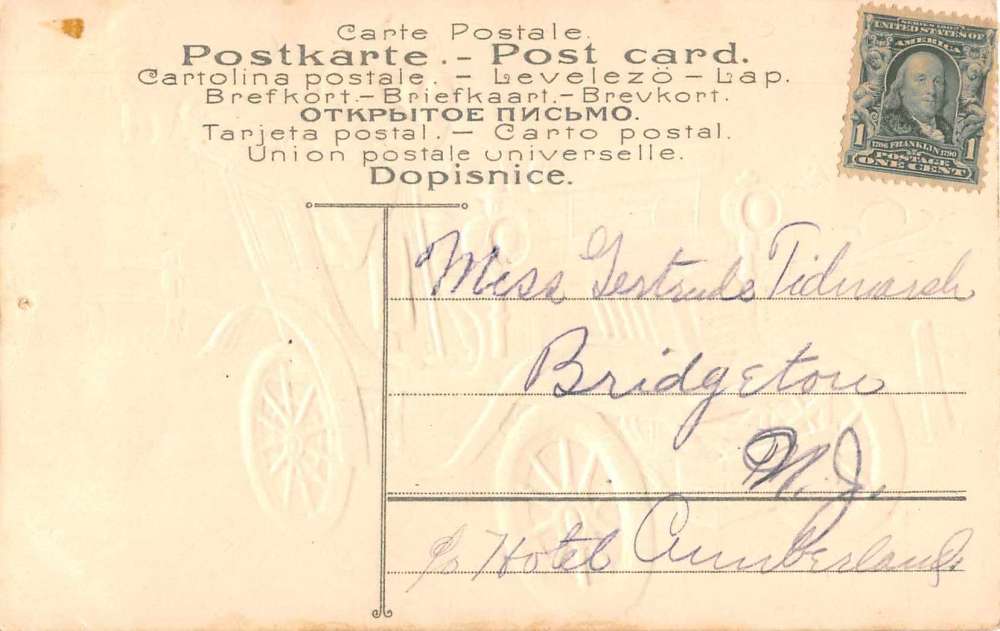 Carte Postale.
Postkarte. - Post card.
Cartolina postale. - Levelezö - Lap.
Brefkort. - Briefkaart. - Brevkort.
ОТКРЫТОЕ ПИСЬМО.
Tarjeta postal. - Carto postal.
Union postale universelle.
Dopisnice.
SERIES 1902
UNITED STATES OF
AMERICA
1 1
1706 FRANKLIN 1790
POSTAGE
ONE CENT
Miss Gertrude Tidmarsh
Bridgeton
N.J.
c/o Hotel Cumberland